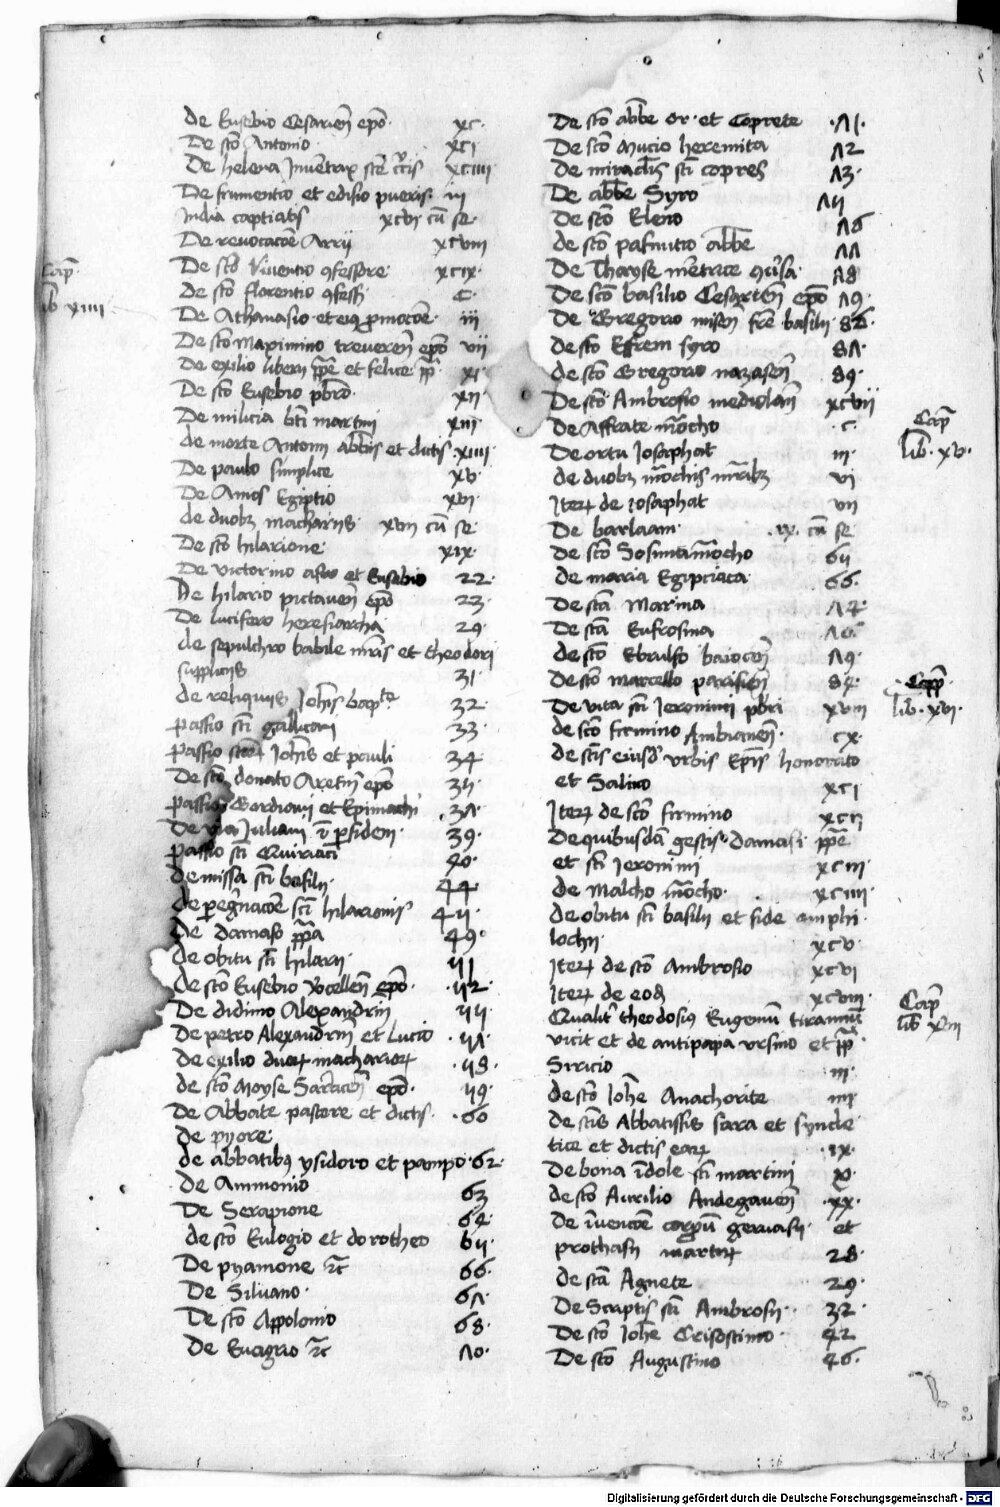 De Eusebio Cesarien̄ ep̄o · xc ·
De sc̄o Antonio · xci
De helena Inuentrix sc̄e c̄cis xciiii
De frumentio et edisio pueris · in
India captiuatis xcvi cū se ·
De reuocac̄oe Arrij xcviii
De sc̄o Viuentio ꝯfessore xcix ·
De sc̄o florentio ꝯfess̄ · c ·
Cap̄ ·
lib xiiii
De Athanasio · et eiꝰ ꝓmoc̄oe · iii
De sc̄o Maximino treueren̄ ep̄o vii
De exilio liberij pp̄e et felice pp̄ · xi ·
De sc̄o Eusebio pb̄ro · xii ·
De milicia bt̄i martini xiii ·
de morte Antonii abb̄is et dictis · xiiii ·
De paulo simplice xv ·
De Amos Egiptio xvi ·
de duobꝫ macharijs · xvii cū se ·
De sc̄o hilarione · xix ·
De victorino et Eusebio 22 ·
De hilario pictauen̄ ep̄o 23 ·
De lucifero heresiarcha 29 ·
de sepulchro babile mr̄is et theodori
supplicijs 31 ·
de reliquijs Joh̄is bapte 32 ·
passio sc̄i gallicani 33 ·
passio sc̄oꝝ Joh̄is et pauli 34
De sc̄o donato Aretin̄ ep̄o 35 ·
passio Gordiani et Epimachi · 37 ·
De Juliani ī ꝑsidem · 39 ·
passio sc̄i Quiriaci 40 ·
de missa sc̄i basilij · 44
de ꝑegrinac̄oe sc̄i hilarionis 45 ·
De damaso pp̄a 49 ·
de obitu sc̄i hilarij · 51
de sc̄o Eusebio Vocellen̄ ep̄o · · 52 ·
De didimo Alexandrin̄ 55 ·
De petro Alexandrin̄ et Lucio · 57 ·
De exilio duoꝝ machariorꝝ · 58 ·
de sc̄o Moyse Saracen̄ ep̄o · 59 ·
De Abbate pastore et dictis · · 60
de pyore ·
de abbatibꝰ ysidoro et pampo · 62 ·
De Ammonio 63
De Serapione 64 ·
de sc̄o Eulogio et dorotheo 65 ·
De pyamone ⁊c̄ 66 ·
De Siluano · 67 ·
De sc̄o Appolonio 68 ·
De Euagrio ⁊c̄ 70 ·
De sc̄o abb̄e or · et Coprete · 71 ·
De sc̄o Mucio heremita 72
De miraclis sc̄i copres 73 ·
De abb̄e Syro 75
De sc̄o Eleno 76
de sc̄o pafnutio abb̄e 77
De Thayse me̅trice 78
De sc̄o basilio Cesarien̄ ep̄o 79 ·
De Gregorio nisen̄ fr̄e basilij · 86 ·
De sc̄o Efrem syro 87 ·
de sc̄o Gregorio nazasen̄ 89 ·
De sc̄o Ambrosio mediolan̄ xcvii
Cap̄
lib · xv ·
De Affrate mōcho · c ·
De ortu Josaphat iii ·
de duobꝫ mōchis mr̄ibꝫ vi
Iteꝝ de Josaphat vii
De barlaam · · ix · cū se
De sc̄o Sosima mōcho 65
de maria Egipciaca · 66 ·
De sc̄a Marina 74 ·
De sc̄a Eufrosina 76
de sc̄o Ebrulfo baiocen̄ 79 ·
De sc̄o marcello parisien̄ 84 ·
Capp̄ ·
lib · xvi ·
De vita sc̄i Jeronimi pb̄ri xviii
de sc̄o firmino Ambianen̄ · cx ·
de sc̄is eiusd̄ vrbis Ep̄is honorato
et Saluio xci
Iteꝝ de sc̄o firmino xcii
De quibusdā gestis · Damasi · pp̄e
et sc̄i Jeronimi xciii ·
de Malcho mōcho · xciiii ·
de obitu sc̄i basilij et fide amphi
lochij · xcv ·
Iteꝝ de sc̄o Ambrosio xcvi
Iteꝝ de eod̄ xcviii ·
Cap̄
lib
Qualit̄ theodosiꝰ Eugeniū tirannū
vicit et de antipapa vrsino et pp̄ ·
Siricio iii ·
de sc̄o Joh̄e Anachorite iiii
de sc̄is Abbatissis sara et sincle
tice et dictis eaꝝ · ix ·
De bona īdole sc̄i martini x ·
de sc̄o Aurilio Andegauen̄ · xx ·
De īuenc̄oe corp̄um geruasij · et
prothasij martirꝝ 28 ·
de sc̄a Agnete 29 ·
De Scriptis sc̄i Ambrosij · 32 ·
De sc̄o Joh̄e Crisostimo · 42
De sc̄o Augustino 46 ·
Digitalisierung gefördert durch die Deutsche Forschungsgemeinschaft - DFG